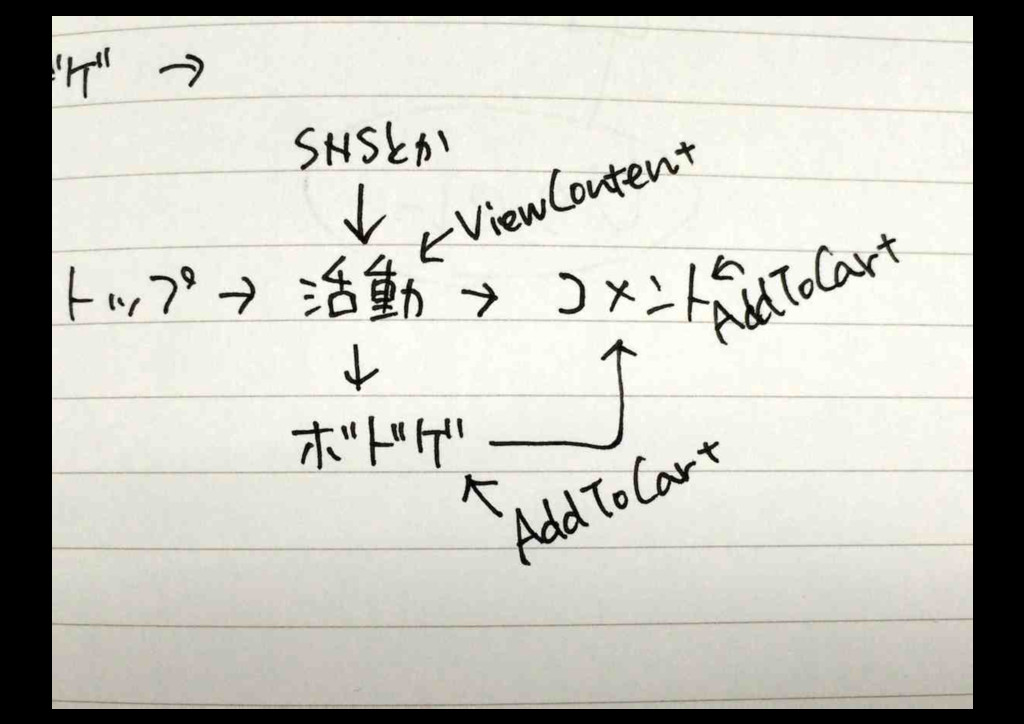 ドゲ →
SNSとか
↓
↙ ViewContent
トップ → 活動 → コメント
↖ AddToCart
↓
ボドゲ
↖ AddToCart